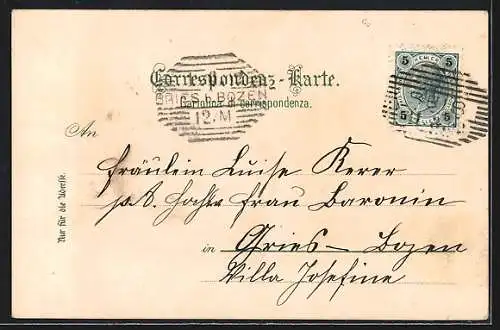 Correspondenz-Karte.
Cartolina di corrispondenza.
GRIES b. BOZEN
12. M
5 5
5 5
An
Fräulein Luise Kerer
p. A. Frau Baronin
in Gries – Bozen
Villa Josefine
Nur für die Adresse.